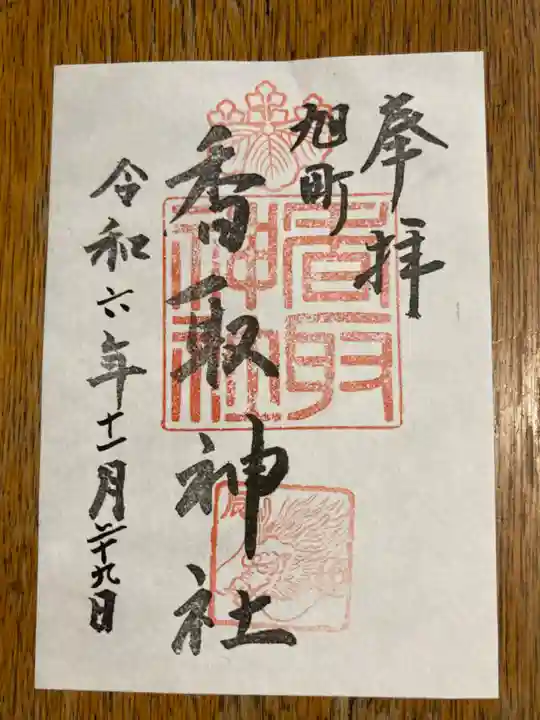 奉拝
旭町
香取神社
令和六年十一月二十九日
香取神社
辰